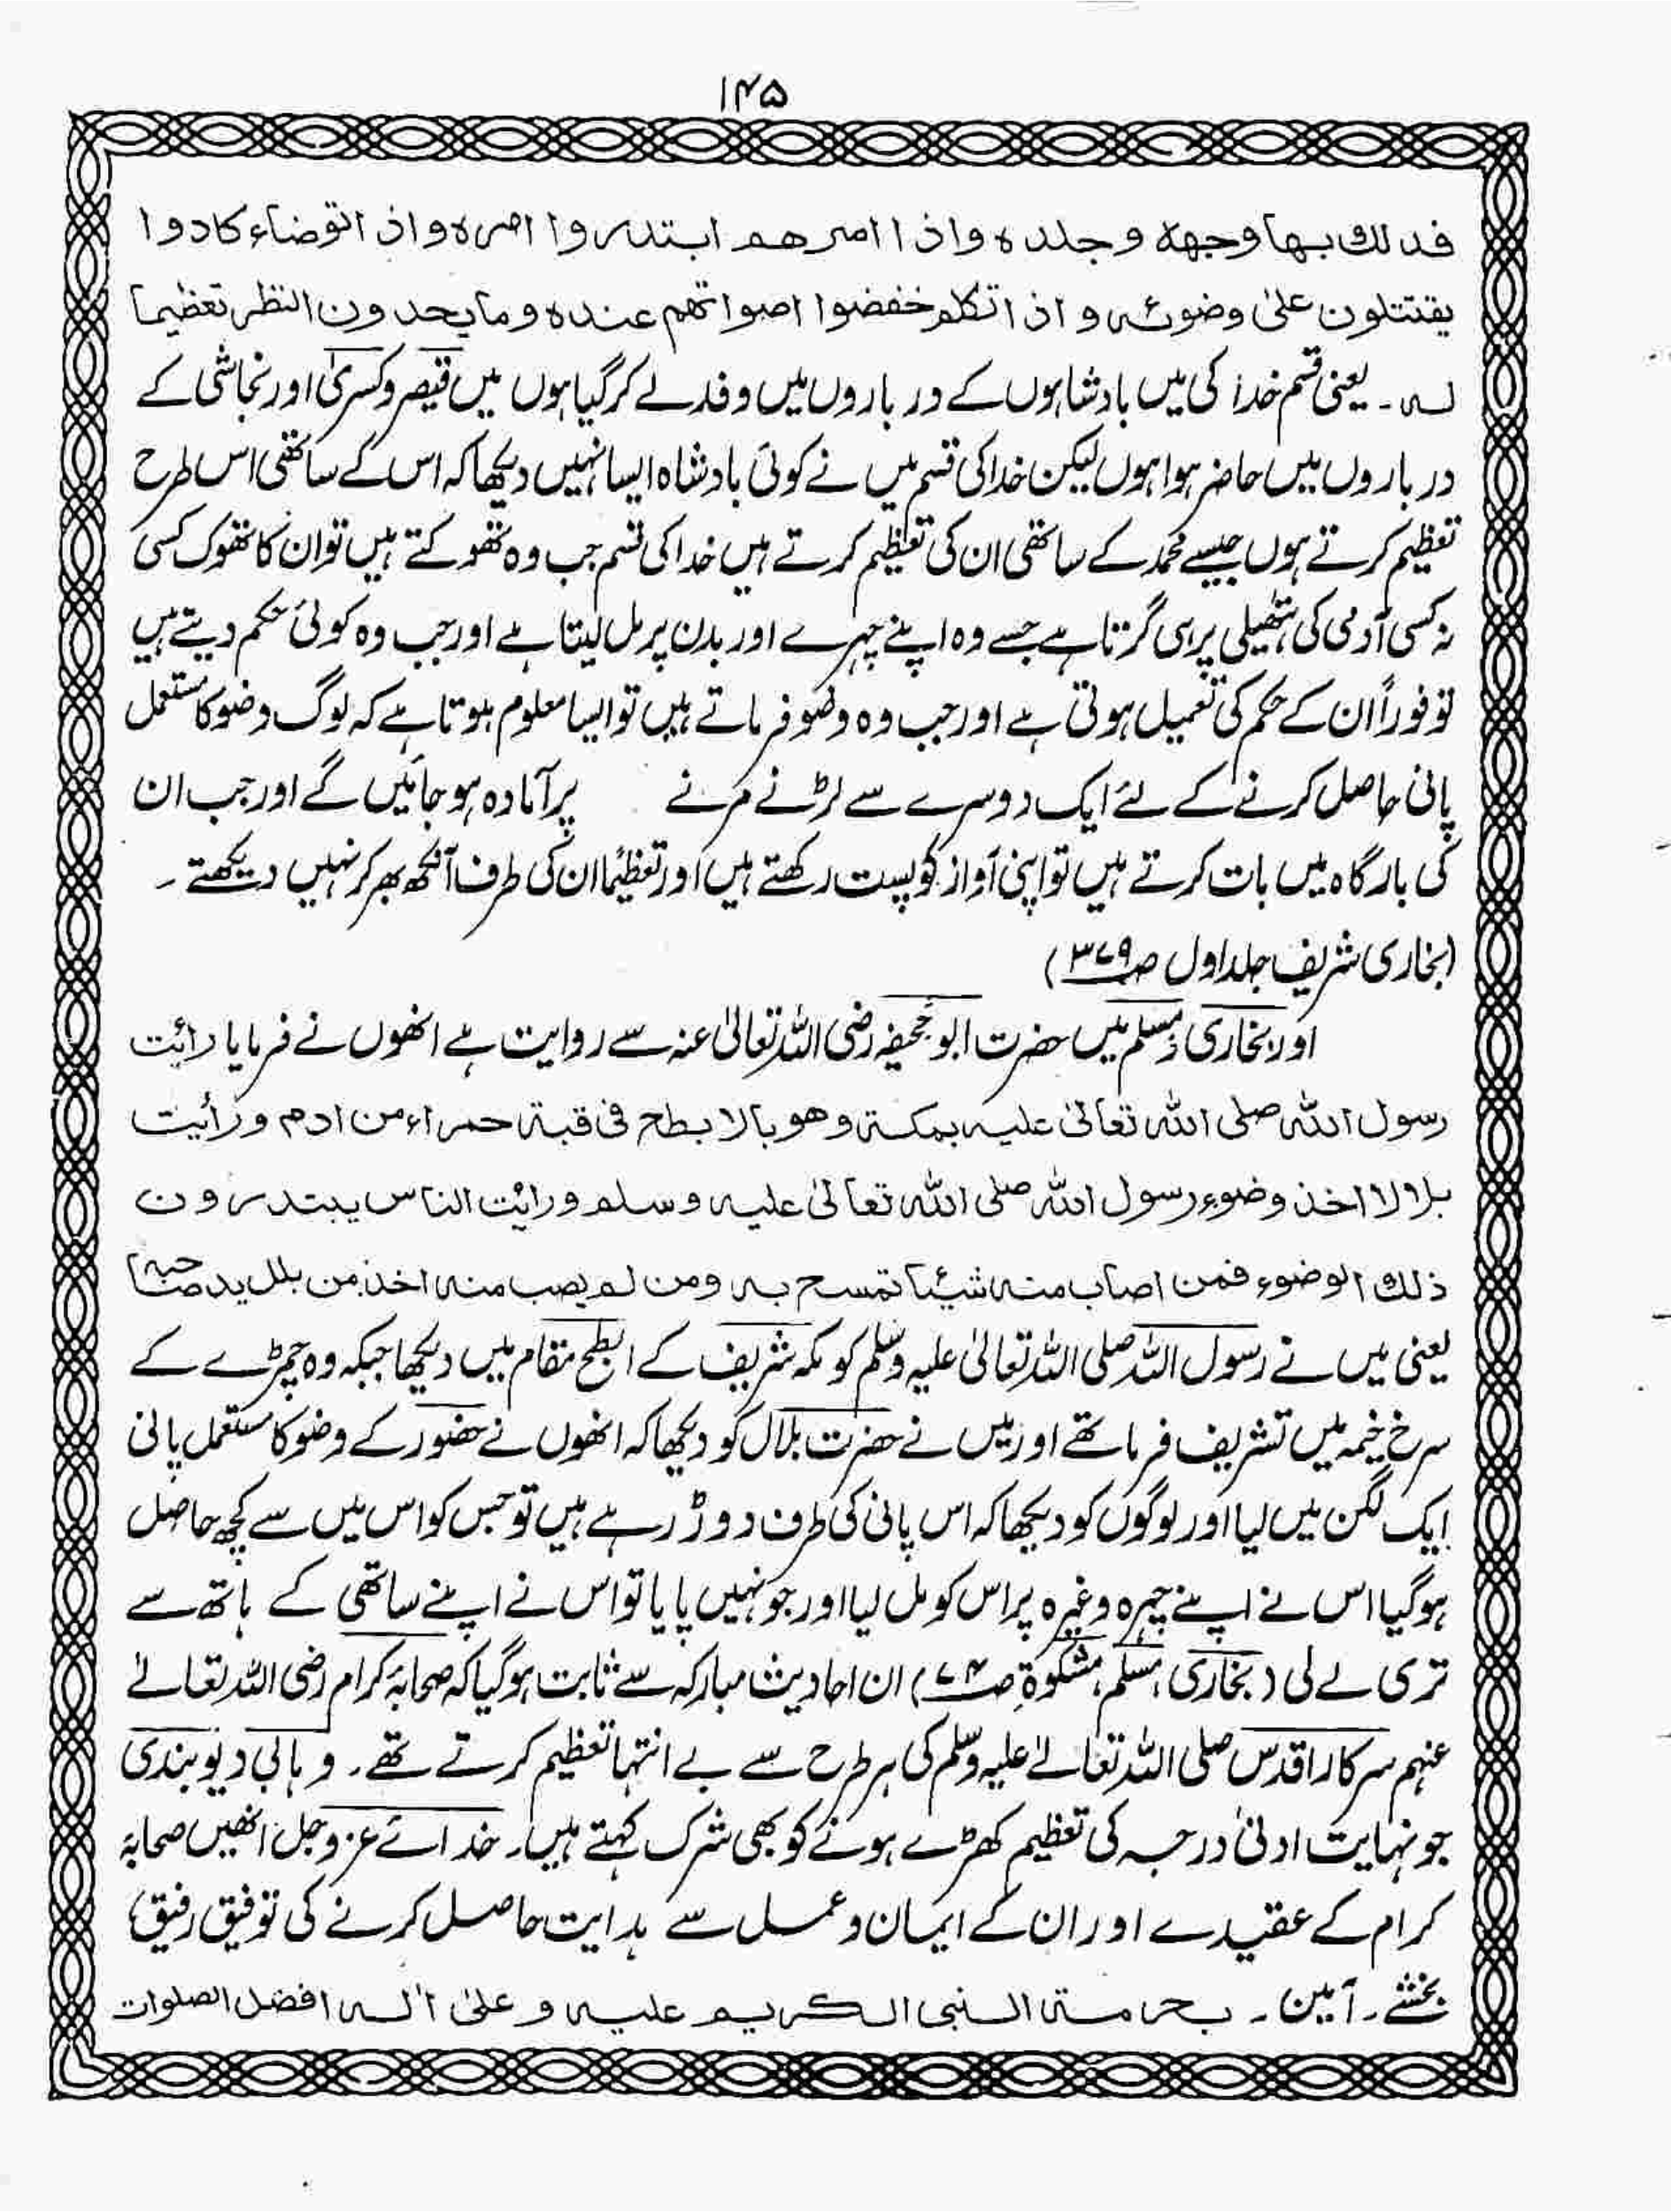 ۱۴۵
فدلك بها وجهه وجلده واذا امرهم ابتدروا امره واذ اتوضاء كادوا
يقتتلون على وضوئه و اذ اتكلم خفضوا اصواتهم عنده وما يحدون النظر تعظيما
له۔ یعنی قسم خدا کی میں بادشاہوں کے درباروں میں وفد لے کر گیا ہوں میں قیصر و کسریٰ اور نجاشی کے
درباروں میں حاضر ہوا ہوں لیکن خدا کی قسم میں نے کوئی بادشاہ ایسا نہیں دیکھا کہ اس کے ساتھی اس طرح
تعظیم کرتے ہوں جیسے محمد کے ساتھی ان کی تعظیم کرتے ہیں خدا کی قسم جب وہ تھوکتے ہیں تو ان کا تھوک کسی
نہ کسی آدمی کی ہتھیلی پر ہی گرتا ہے جسے وہ اپنے چہرے اور بدن پر مل لیتا ہے اور جب وہ کوئی حکم دیتے ہیں
تو فوراً ان کے حکم کی تعمیل ہوتی ہے اور جب وہ وضو فرماتے ہیں تو ایسا معلوم ہوتا ہے کہ لوگ وضو کا مستعمل
پانی حاصل کرنے کے لئے ایک دوسرے سے لڑنے مرنے پر آمادہ ہو جائیں گے اور جب ان
کی بارگاہ میں بات کرتے ہیں تو اپنی آواز کو پست رکھتے ہیں اور تعظیماً ان کی طرف آنکھ بھر کر نہیں دیکھتے۔
(بخاری شریف جلد اول ص۳۷۹)
اور بخاری و مسلم میں حضرت ابو جحیفہ رضی اللہ تعالیٰ عنہ سے روایت ہے انھوں نے فرمایا رائت
رسول الله صلى الله تعالىٰ عليه بمكة وهو بالابطح فى قبة حمراء من ادم ورأيت
بلالا اخذ وضوء رسول الله صلى الله تعالىٰ عليه وسلم ورائت الناس يبتدرون
ذلك الوضوء فمن اصاب منه شيئا تمسح به ومن لم يصب منه اخذ من بلل يد صاحبه
یعنی میں نے رسول اللہ صلی اللہ تعالیٰ علیہ وسلم کو مکہ شریف کے ابطح مقام میں دیکھا جبکہ وہ چمڑے کے
سرخ خیمہ میں تشریف فرما تھے اور میں نے حضرت بلال کو دیکھا کہ انھوں نے حضور کے وضو کا مستعمل پانی
ایک لگن میں لیا اور لوگوں کو دیکھا کہ اس پانی کی طرف دوڑ رہے ہیں تو جس کو اس میں سے کچھ حاصل
ہو گیا اس نے اپنے چہرہ وغیرہ پر اس کو مل لیا اور جو نہیں پایا تو اس نے اپنے ساتھی کے ہاتھ سے
تری لے لی (بخاری، مسلم، مشکوٰۃ ص۷۴) ان احادیث مبارکہ سے ثابت ہو گیا کہ صحابۂ کرام رضی اللہ تعالےٰ
عنہم سرکار اقدس صلی اللہ تعالےٰ علیہ وسلم کی ہر طرح سے بے انتہا تعظیم کرتے تھے۔ وہابی دیوبندی
جو نہایت ادنیٰ درجہ کی تعظیم کھڑے ہونے کو بھی شرک کہتے ہیں۔ خدائے عزوجل انھیں صحابۂ
کرام کے عقیدے اور ان کے ایمان و عمل سے ہدایت حاصل کرنے کی توفیق رفیق
بخشے۔ آمین۔ بحرمة النبى الكريم عليه و علىٰ اٰله افضل الصلوات